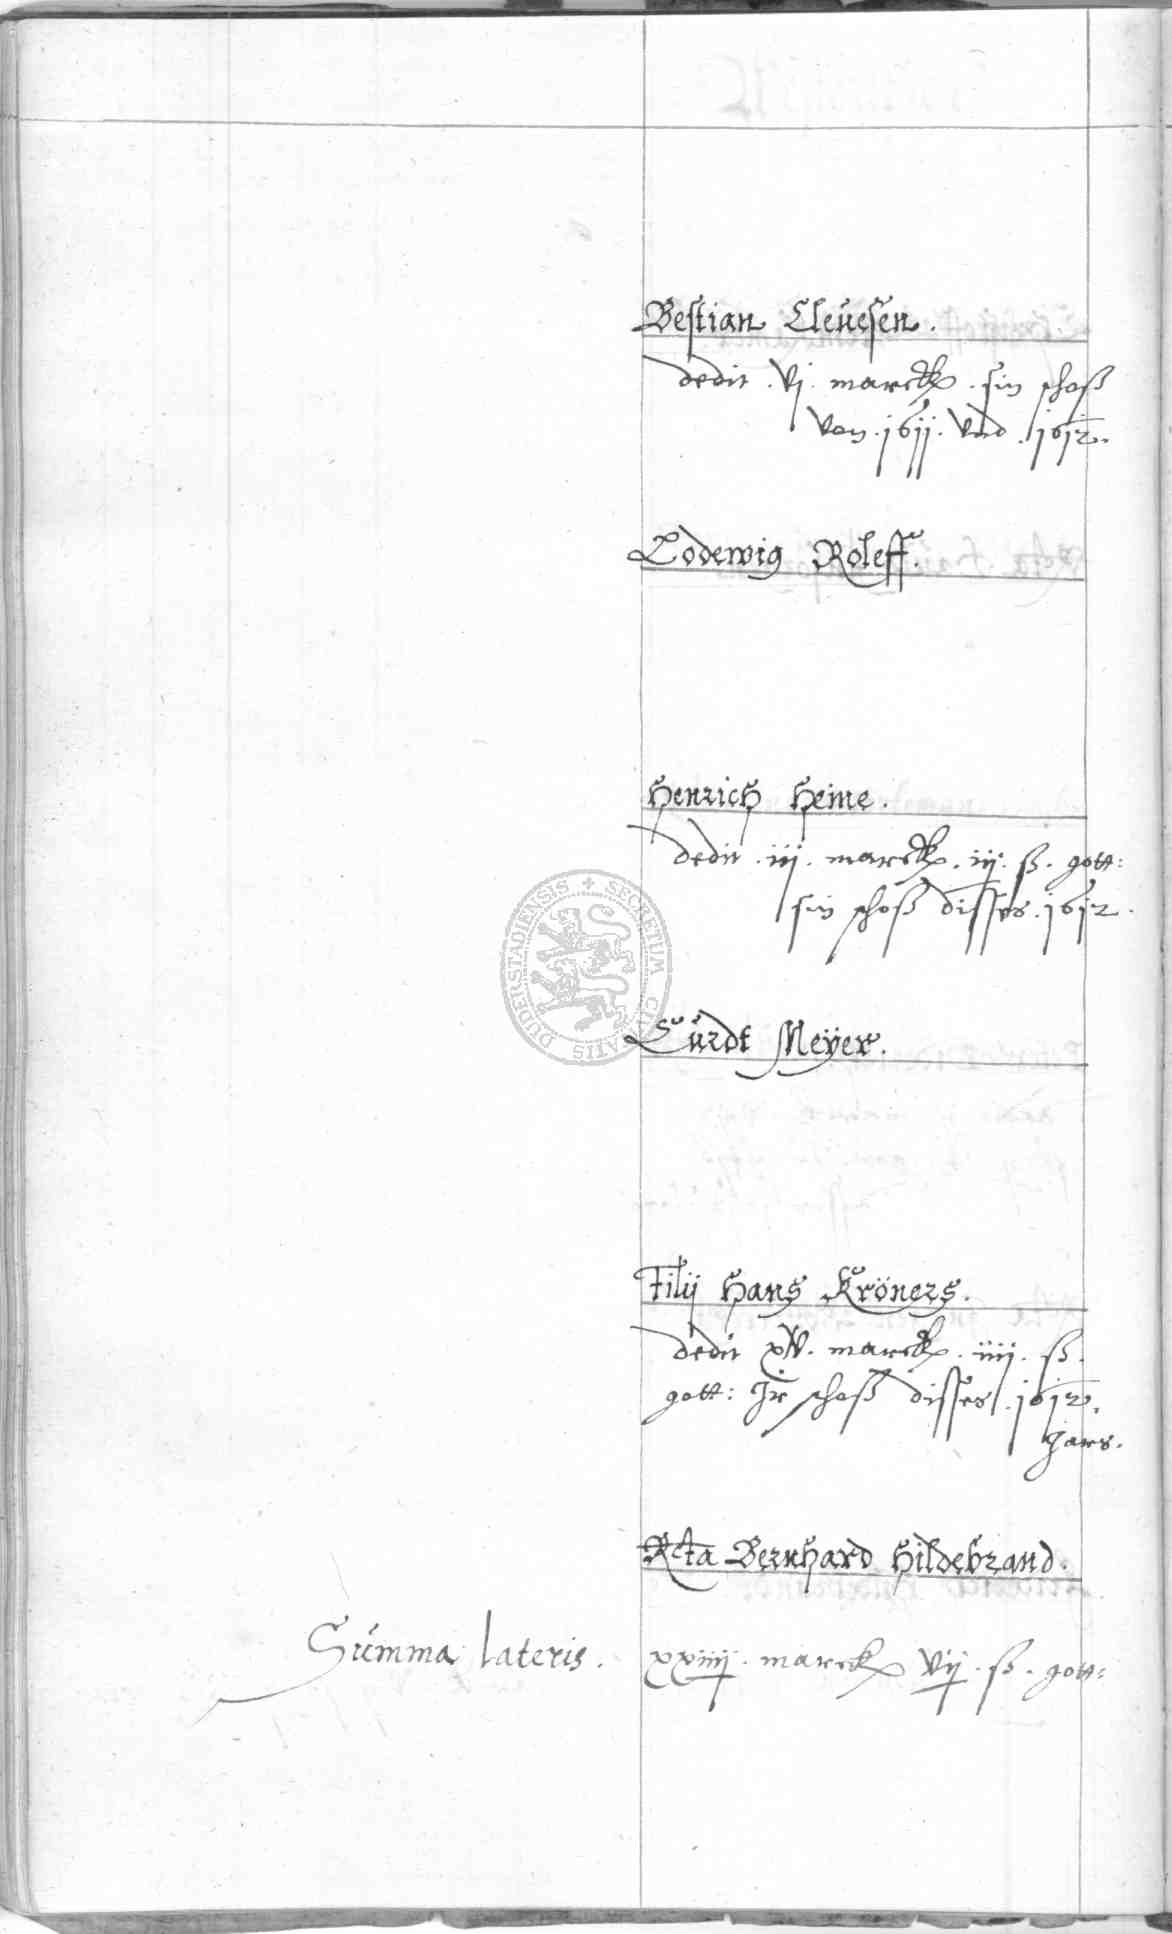 Bestian Cleuesen.
dedit . vj . marck . sin schoß
von . 1611 . vnd . 1612.
Lodewig Roleff.
Henrich Heine.
dedit . iij . marck . iij . ß . gott:
sin schoß disses . 1612.
Curdt Meyer.
Filij Hans Kröners.
dedit xv . marck . iiij . ß.
gott: Jr schoß disses . 1612.
Jars.
Rcta Bernhard Hildebrand.
Summa lateris . xxiiij . marck vij . ß . gott:
SECRETUM CIVITATIS DUDERSTADIENSIS